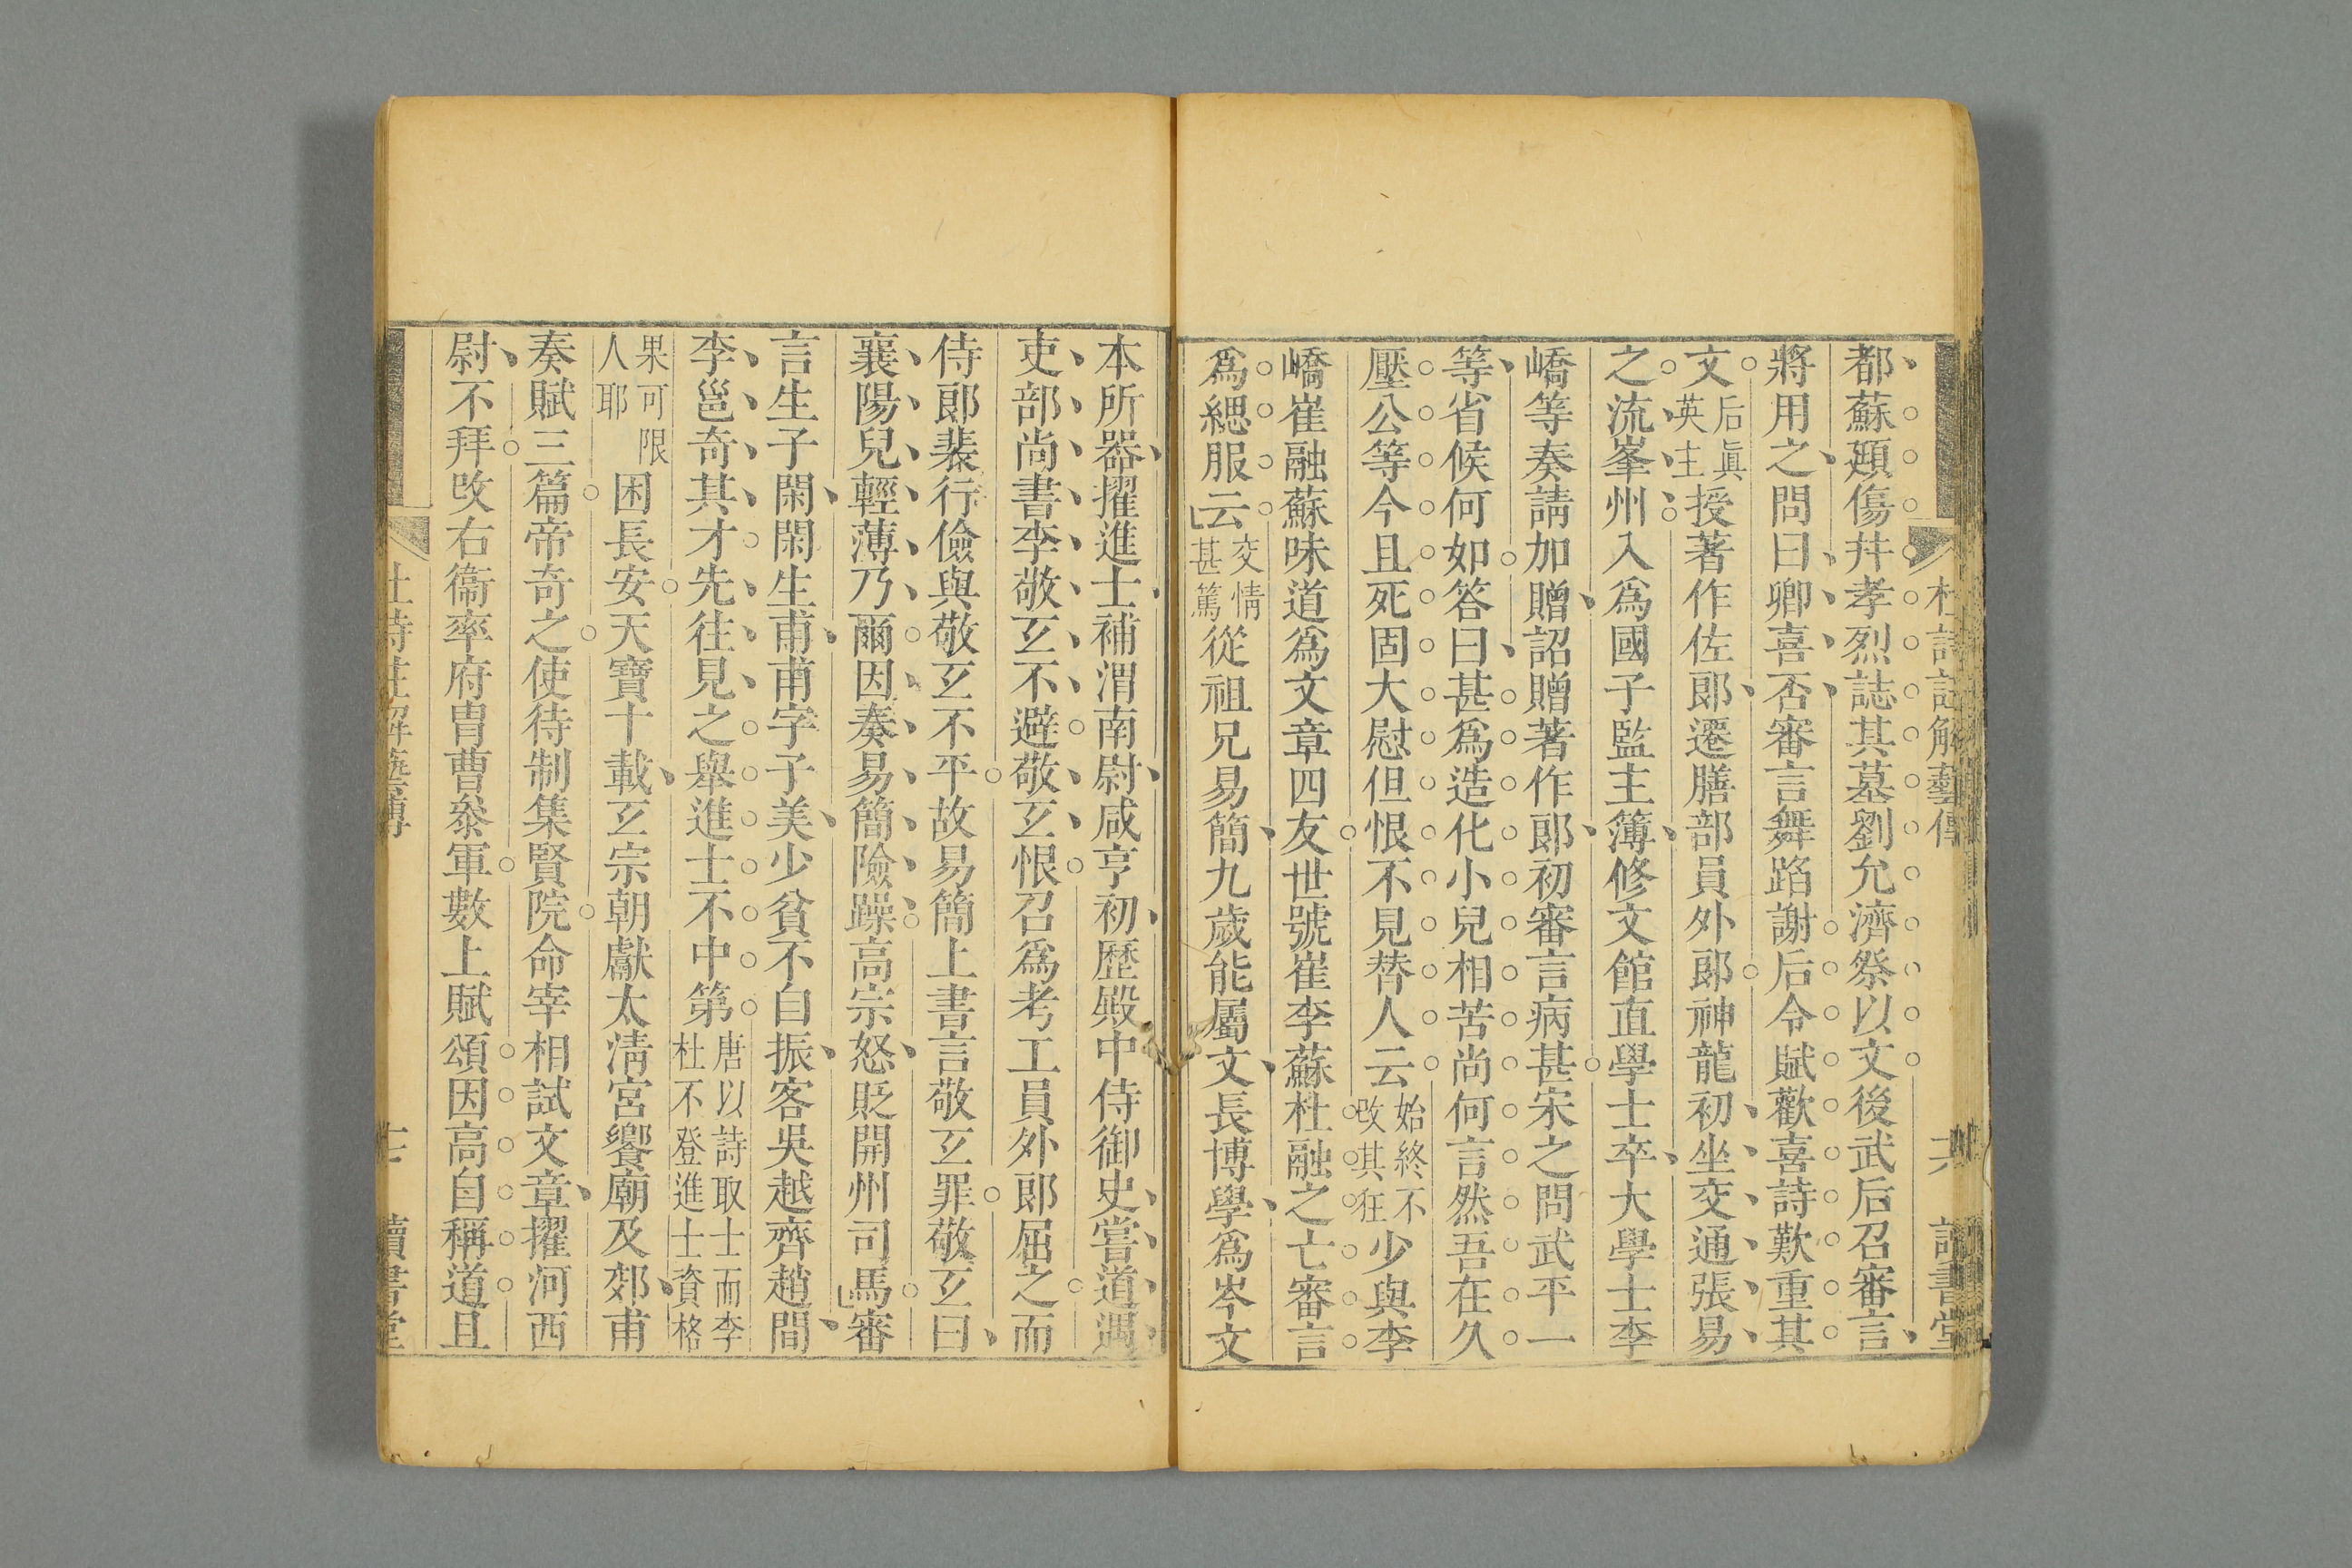 都蘇頲傷并孝烈誌其墓劉允濟祭以文後武后召審言
將用之問曰卿喜否審言舞蹈謝后令賦歡喜詩歎重其
文后眞英主授著作佐郎遷膳部員外郎神龍初坐交通張易
之流峯州入爲國子監主簿修文館直學士卒大學士李
嶠等奏請加贈詔贈著作郎初審言病甚宋之問武平一
等省候何如答曰甚爲造化小兒相苦尚何言然吾在久
壓公等今且死固大慰但恨不見替人云始終不攺其狂少與李
嶠崔融蘇味道爲文章四友世號崔李蘇杜融之亡審言
爲緦服云交情甚篤從祖兄易簡九歲能屬文長博學爲岑文
本所器擢進士補渭南尉咸亨初歷殿中侍御史嘗道遇
吏部尚書李敬玄不避敬玄恨召爲考工員外郎屈之而
侍郎裴行儉與敬玄不平故易簡上書言敬玄罪敬玄曰
襄陽兒輕薄乃爾因奏易簡險躁高宗怒貶開州司馬審
言生子閑閑生甫甫字子美少貧不自振客吳越齊趙間
李邕奇其才先往見之舉進士不中第唐以詩取士而李杜不登進士資格
果可限人耶困長安天寶十載玄宗朝獻太淸宮饗廟及郊甫
奏賦三篇帝奇之使待制集賢院命宰相試文章擢河西
尉不拜攺右衞率府胄曹叅軍數上賦頌因高自稱道且